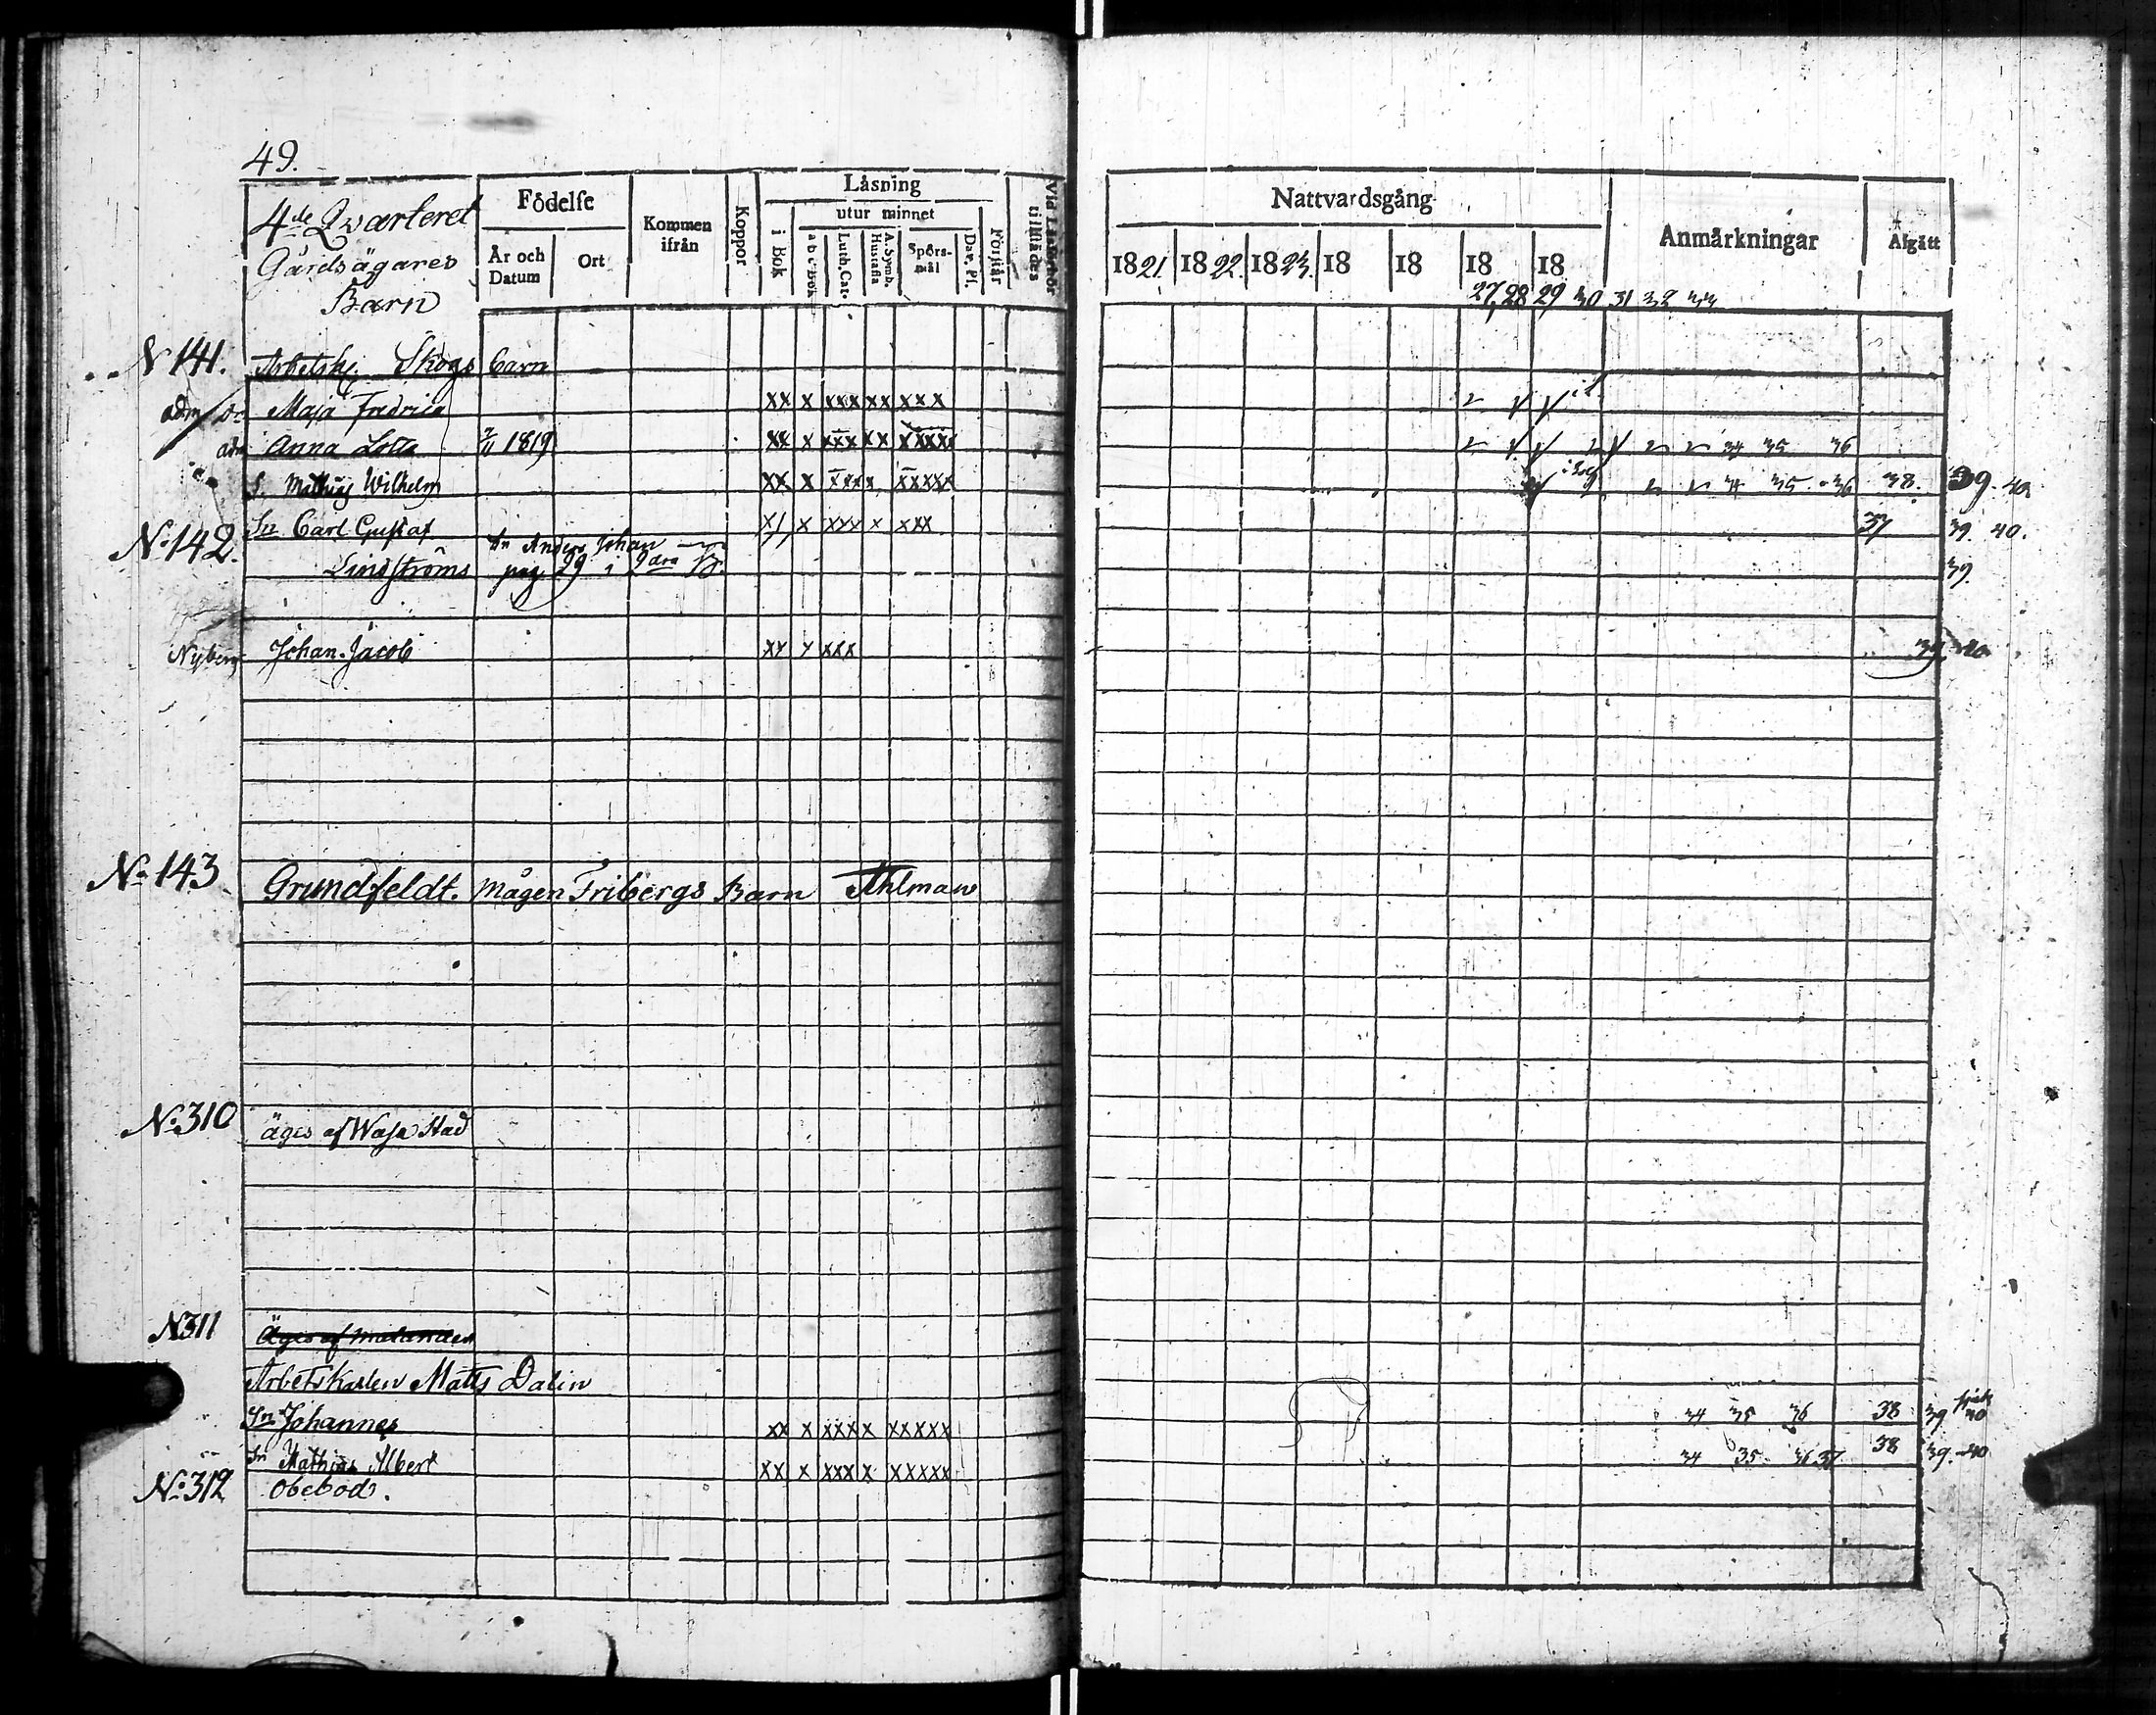 49.
4de Qvarteret
Gårdsägares
Barn
Födelse
År och Datum
Ort
Kommen ifrån
Koppor
Låsning
i Bok
utur minnet
a b c Bok
Luth. Cat.
A. Symb. Hustafla
Spörs-mål
Dav. Ps.
Förstår
Nattvardsgång
1821 1822. 1823. 18 18 18 18
27, 28 29 30 31 32 33
Anmårkningar
Afgått
N 141. Arbetsk. Skogs barn
adm Maja Fredrica xx x xxx xx xxx
adm Anna Lotta 1819 xx x xxx xx xxxx 34 35 36
S. Mathias Wilhelm xx x xxxx xxxxx 34 35 36 38. 39. 40
Sn Carl Gustaf x/ x xxx x xxx 37 39 40.
No 142. Lindströms Sn Anders Johan
pag 29 i 2dra 39
Nyberg Johan Jacob xx x xxx 39 40
No 143 Grundfeldt. mågen Fribergs Barn Ahlman
No 310 äges af Wasa Stad
N 311 Äges af
Arbetskarlen Matts Dalin
Sn Johannes xx x xxxx x xxxxx 34 35 36 38 39 40
Sn Mathias Albert xx x xxx x xxxxx 34 35 36 37 38 39. 40
No 312 Obebod.